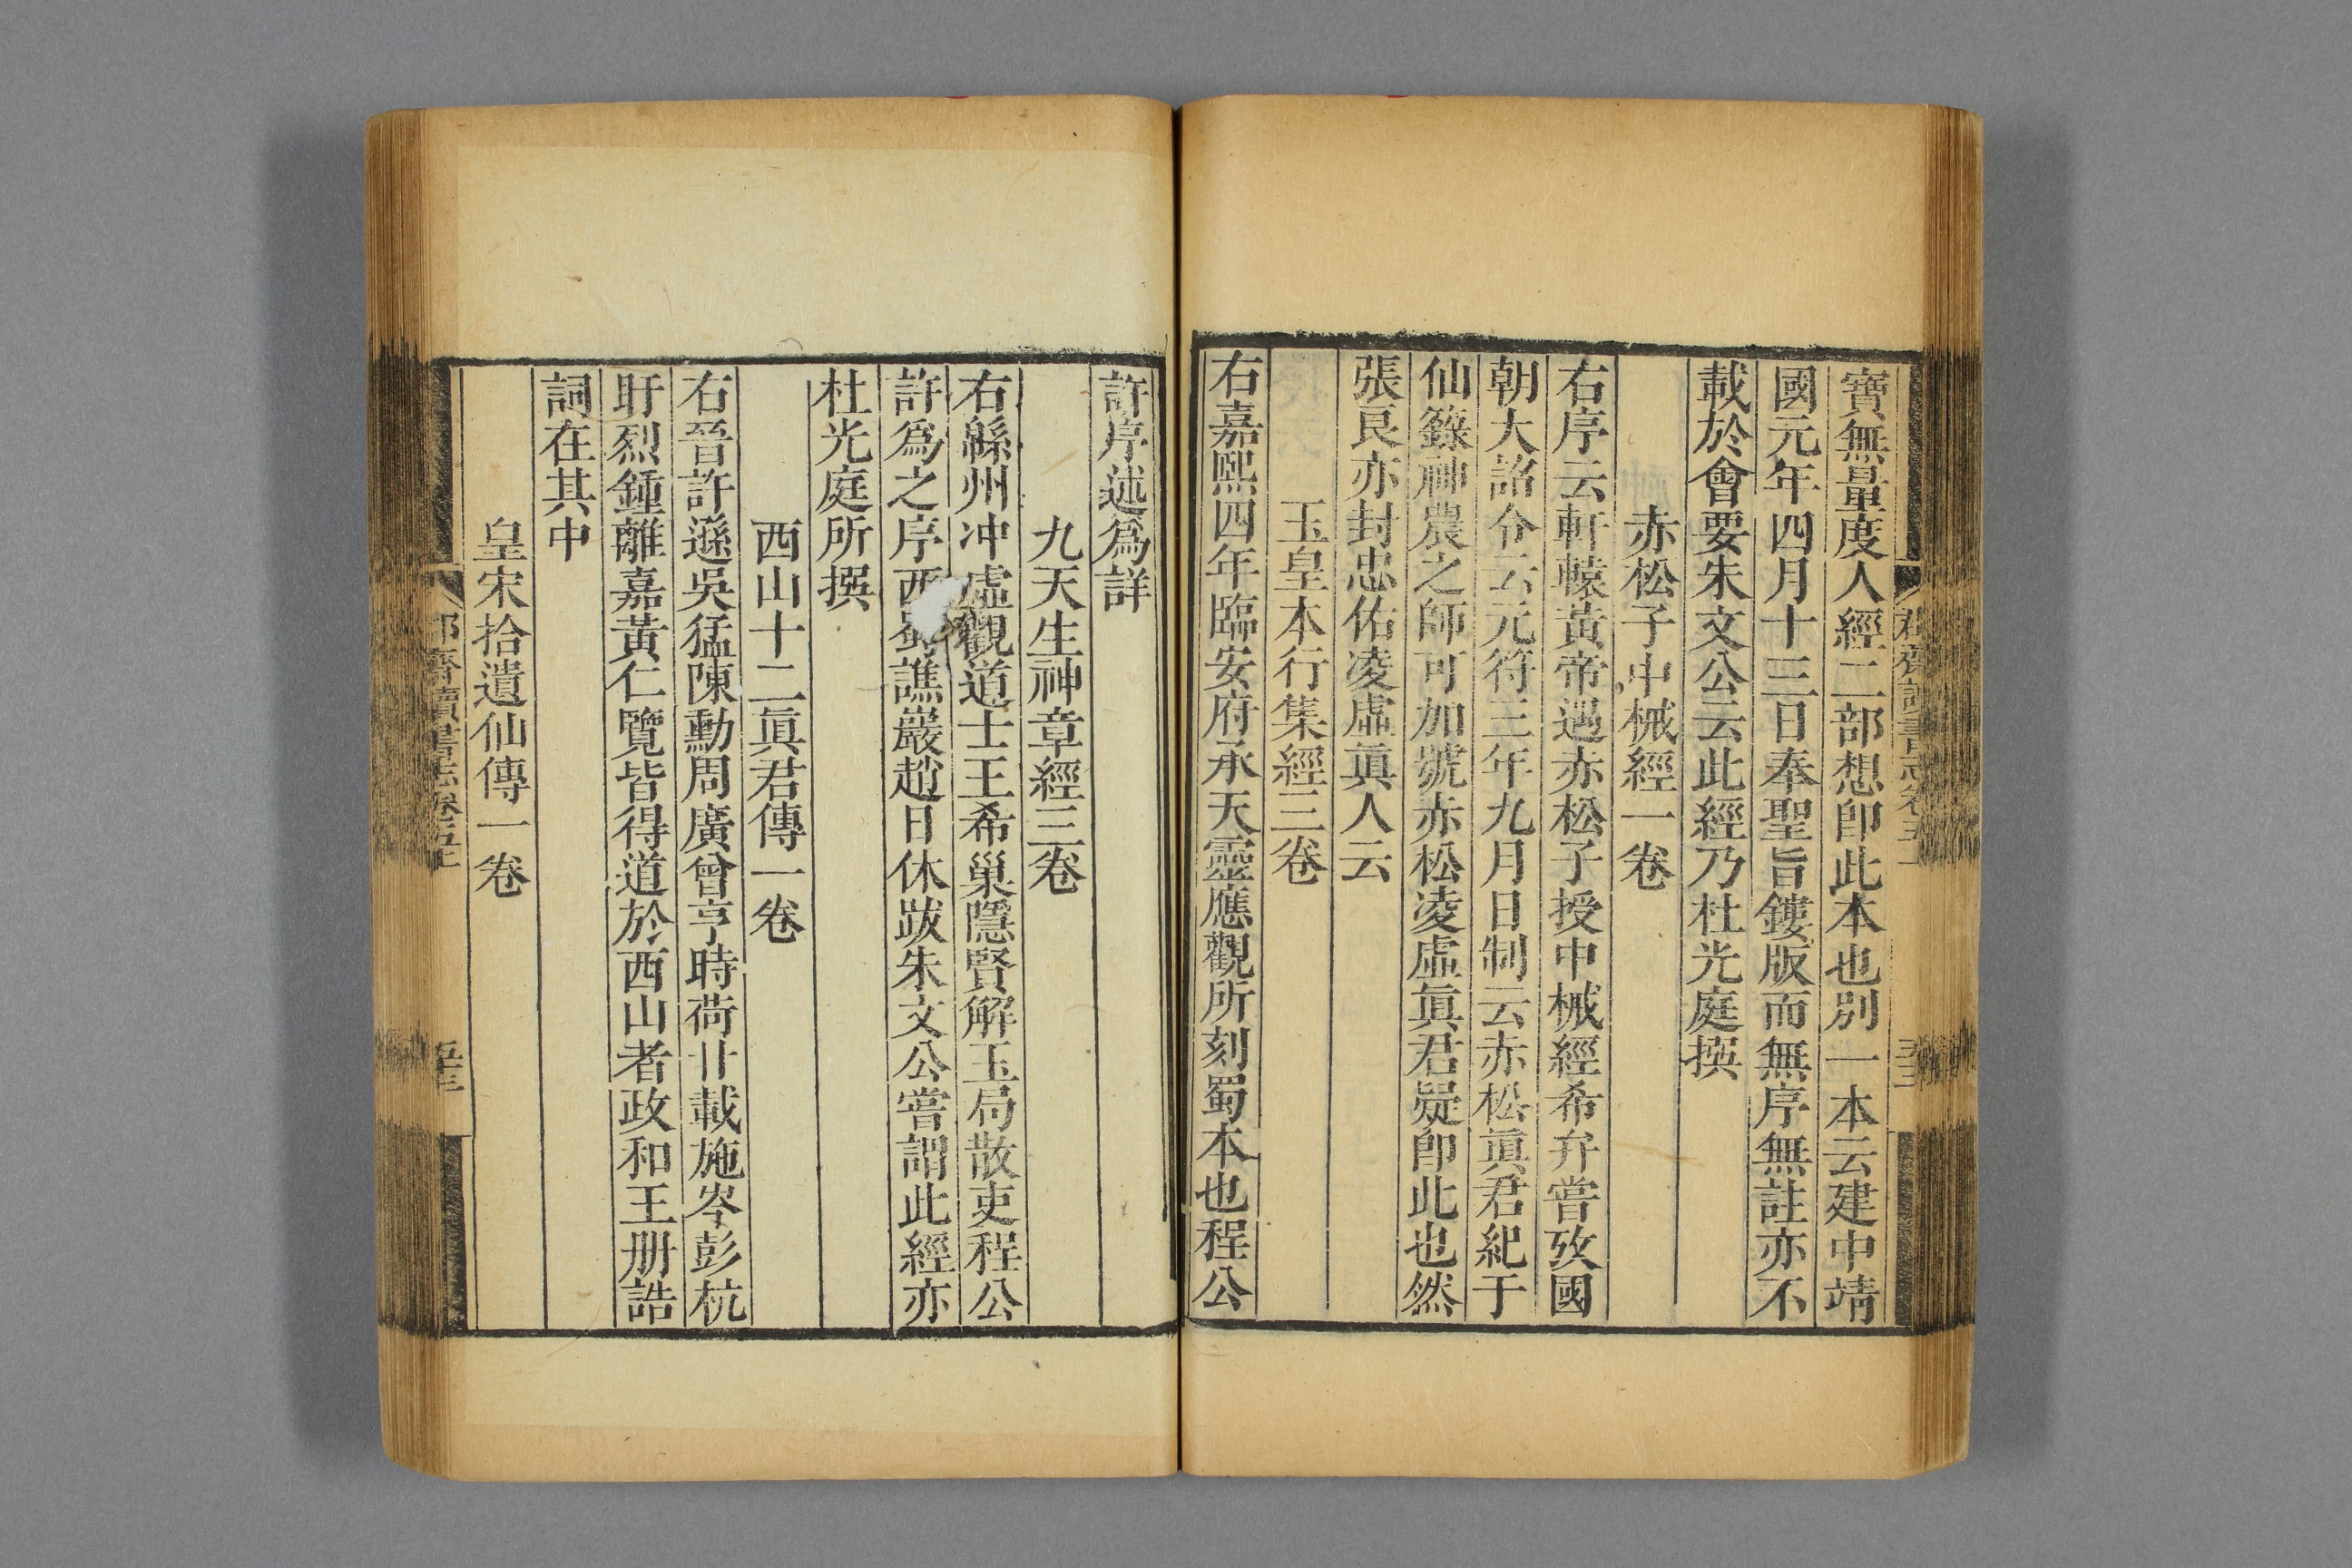 寶無量度人經二部想卽此本也別一本云建中靖
國元年四月十三日奉聖旨鏤版而無序無註亦不
載於會要朱文公云此經乃杜光庭撰
赤松子中械經一卷
右序云軒轅黃帝遇赤松子授中械經希弁嘗攷國
朝大詔令云元符三年九月日制云赤松眞君紀于
仙籙神農之師可加號赤松凌虛眞君疑卽此也然
張良亦封忠佑凌虛眞人云
玉皇本行集經三卷
右嘉熙四年臨安府承天靈應觀所刻蜀本也程公
許序述爲詳
九天生神章經三卷
右緜州冲虛觀道士王希巢隱賢解玉局散吏程公
許爲之序西蜀譙巖趙日休跋朱文公嘗謂此經亦
杜光庭所撰
西山十二眞君傳一卷
右晉許遜吳猛陳勳周廣曾亨時荷廿載施岑彭杭
盱烈鍾離嘉黃仁覽皆得道於西山者政和王册誥
詞在其中
皇宋拾遺仙傳一卷
郡齋讀書志卷五上